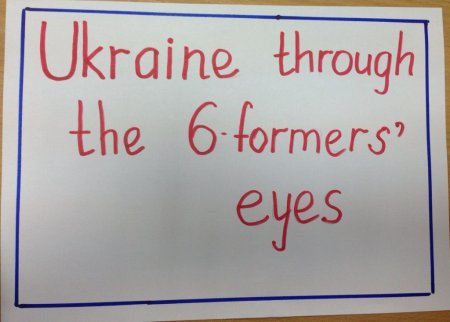 Ukraine through
the 6-formers'
eyes